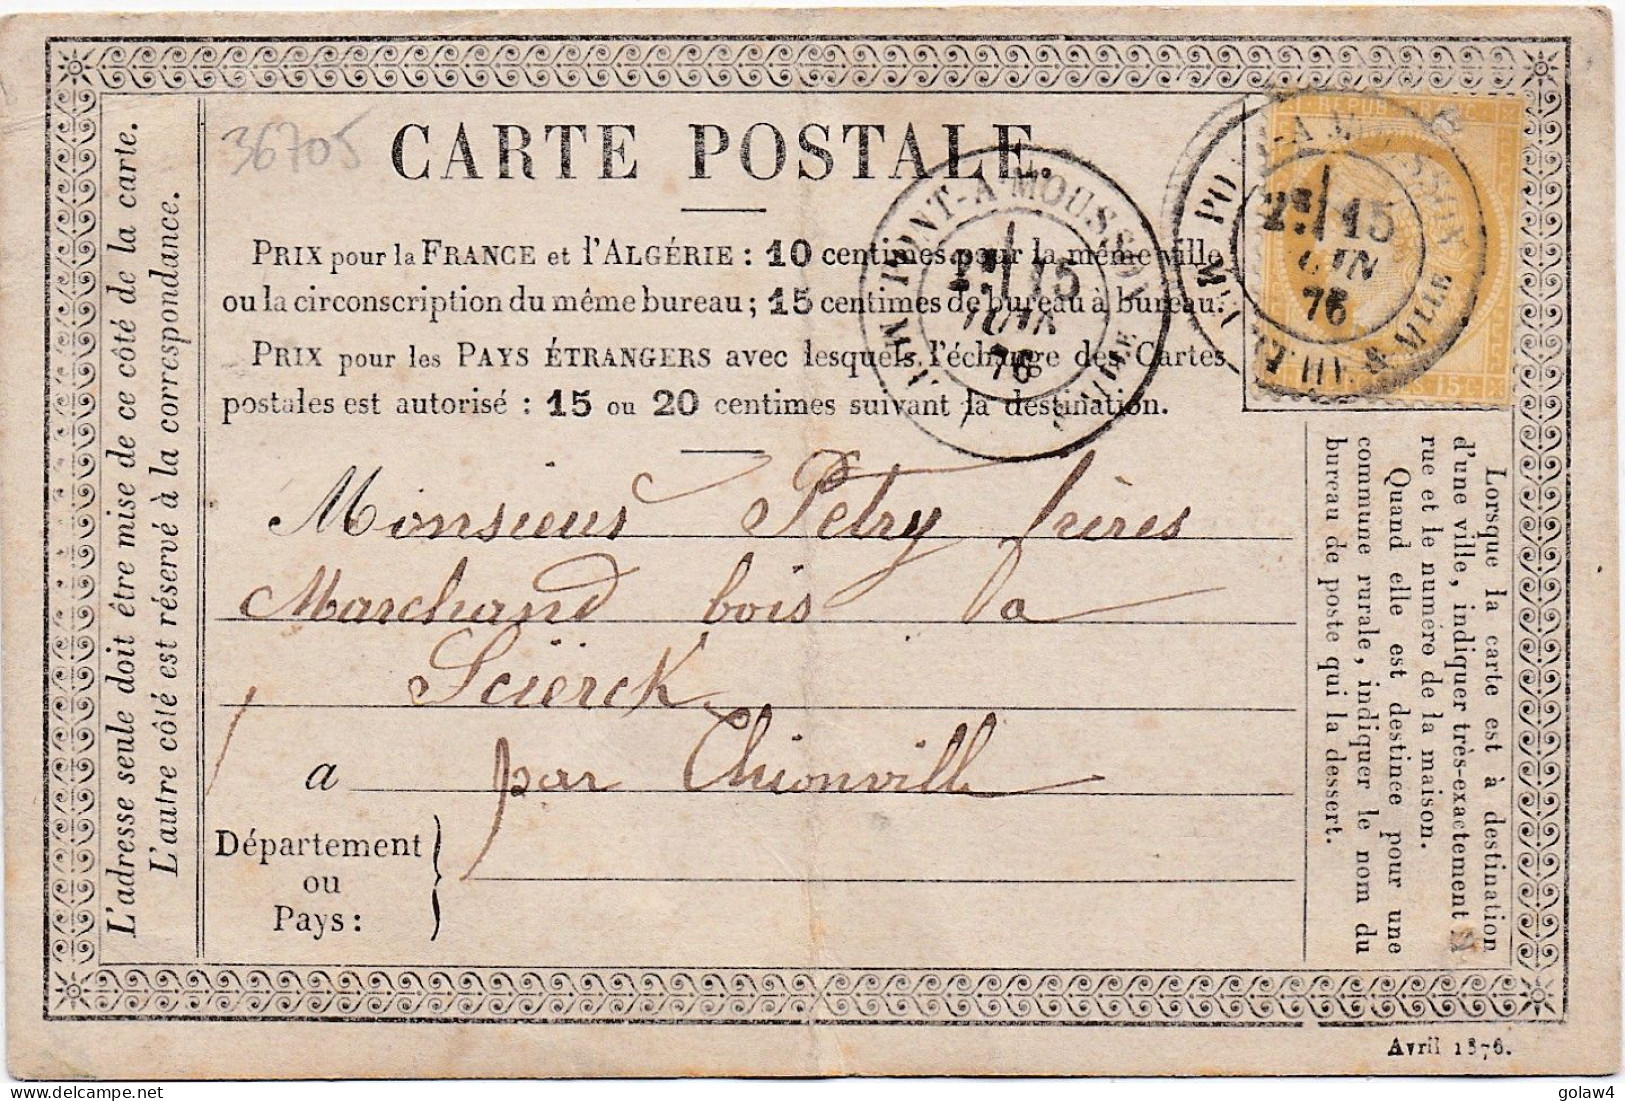 36705
CARTE POSTALE.
PRIX pour la FRANCE et l'ALGÉRIE : 10 centimes pour la même ville
ou la circonscription du même bureau ; 15 centimes de bureau à bureau.
PRIX pour les PAYS ÉTRANGERS avec lesquels l'échange des Cartes
postales est autorisé : 15 ou 20 centimes suivant la destination.
PONT-A-MOUSSON
2E 15
JUIN
76
REPUB FRANC
15c
PONT-A-MOUSSON
2E 15
JUIN
76
MEURTHE & MLLE
Monsieur Petry frères
Marchand bois a
Scierck
a par Thionville
Département
ou
Pays :
L'adresse seule doit être mise de ce côté de la carte.
L'autre côté est réservé à la correspondance.
Lorsque la carte est à destination
d'une ville, indiquer très-exactement la
rue et le numéro de la maison.
Quand elle est destinée pour une
commune rurale, indiquer le nom du
bureau de poste qui la dessert.
Avril 1876.
golaw4